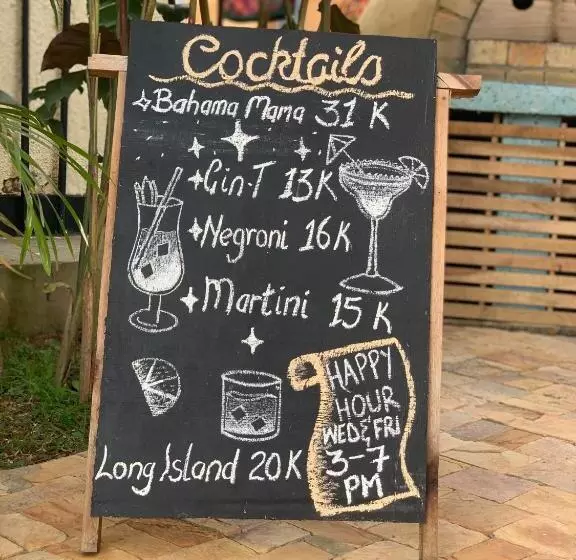 Cocktails
Bahama Mama 31 K
Gin-T 13K
Negroni 16K
Martini 15 K
Long Island 20K
HAPPY
HOUR
WED & FRI
3-7
PM